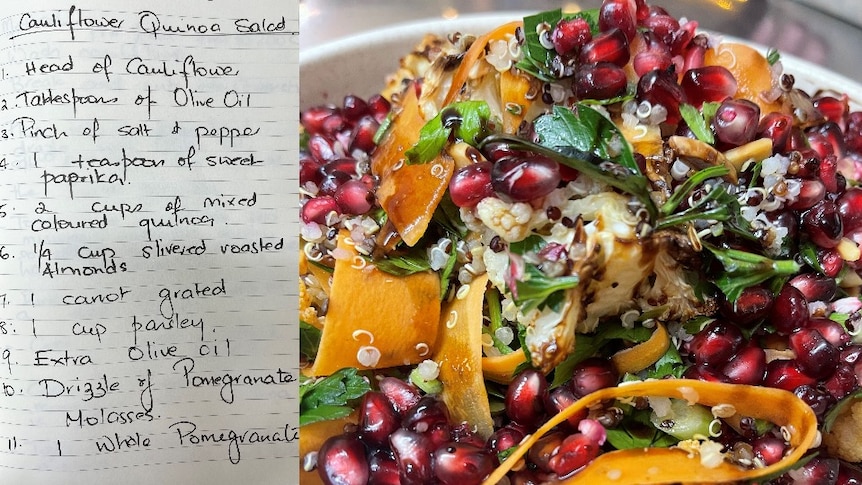 Cauliflower Quinoa Salad.
1. Head of Cauliflower
2. Tablespoons of Olive Oil
3. Pinch of salt & pepper
4. 1 teaspoon of sweet
paprika.
5. 2 cups of mixed
coloured quinoa.
6. 1/4 cup slivered roasted
Almonds
7. 1 carrot grated
8. 1 cup parsley.
9. Extra Olive oil
10. Drizzle of Pomegranate
Molasses.
11. 1 whole Pomegranate